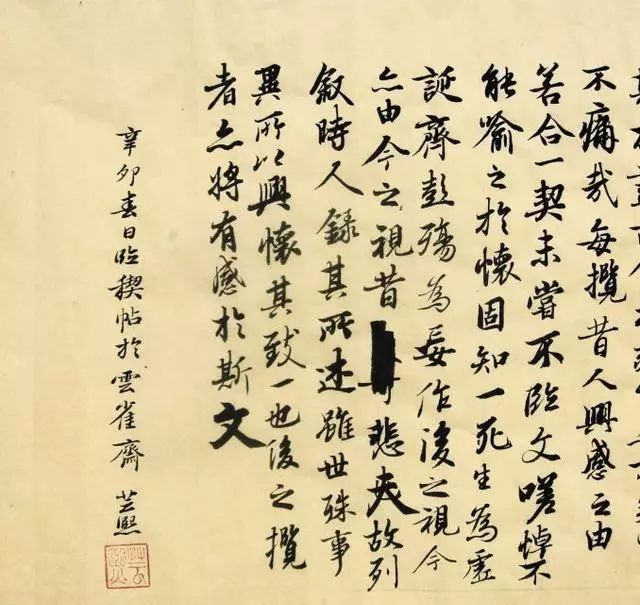 不痛哉每攬昔人興感之由
若合一契未嘗不臨文嗟悼不
能喻之於懷固知一死生為虛
誕齊彭殤為妄作後之視今
亦由今之視昔悲夫故列
敘時人錄其所述雖世殊事
異所以興懷其致一也後之攬
者亦將有感於斯文
辛卯春日臨禊帖於雲雀齋 芸熙